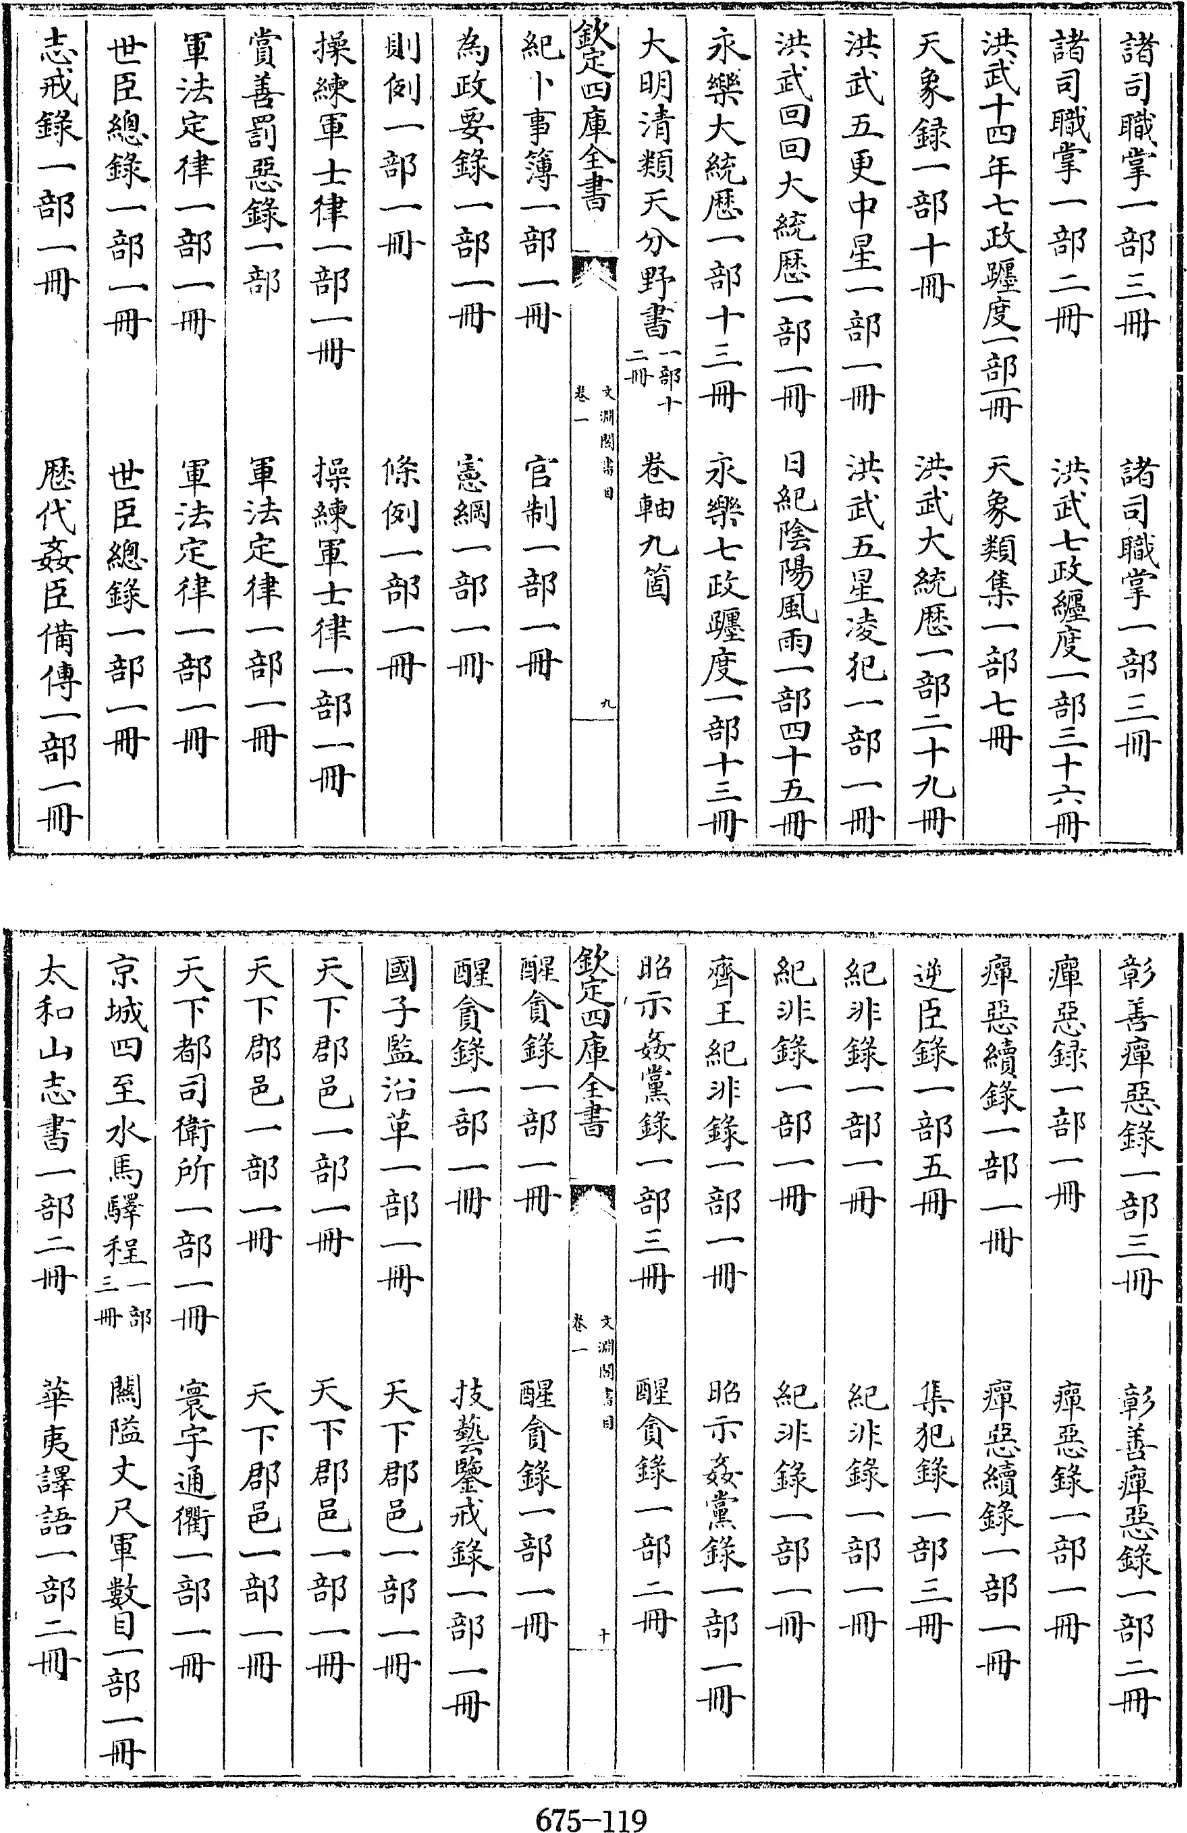 諸司職掌一部三冊　諸司職掌一部三冊
諸司職掌一部二冊　洪武七政纒度一部三十六冊
洪武十四年七政躔度一部一冊　天象類集一部七冊
天象録一部十冊　洪武大統歷一部二十九冊
洪武五更中星一部一冊　洪武五星凌犯一部一冊
洪武回回大統歷一部一冊　日紀陰陽風雨一部四十五冊
永樂大統歷一部十三冊　永樂七政躔度一部十三冊
大明清類天分野書一部十二冊　卷軸九箇
欽定四庫全書　文淵閣書目　卷一　九
紀卜事簿一部一冊　官制一部一冊
為政要錄一部一冊　憲綱一部一冊
則例一部一冊　條例一部一冊
操練軍士律一部一冊　操練軍士律一部一冊
賞善罰惡錄一部　軍法定律一部一冊
軍法定律一部一冊　軍法定律一部一冊
世臣總錄一部一冊　世臣總錄一部一冊
志戒錄一部一冊　歷代姦臣備傳一部一冊
彰善癉惡錄一部三冊　彰善癉惡錄一部二冊
癉惡録一部一冊　癉惡錄一部一冊
癉惡續錄一部一冊　癉惡續錄一部一冊
逆臣錄一部五冊　集犯錄一部三冊
紀非錄一部一冊　紀非錄一部一冊
紀非錄一部一冊　紀非錄一部一冊
齊王紀非錄一部一冊　昭示姦黨錄一部一冊
昭示姦黨錄一部三冊　醒貪錄一部二冊
欽定四庫全書　文淵閣書目　卷一　十
醒貪錄一部一冊　醒貪錄一部一冊
醒貪錄一部一冊　技藝鑒戒錄一部一冊
國子監沿革一部一冊　天下郡邑一部一冊
天下郡邑一部一冊　天下郡邑一部一冊
天下郡邑一部一冊　天下郡邑一部一冊
天下都司衛所一部一冊　寰宇通衢一部一冊
京城四至水馬驛程一部三冊　關隘丈尺軍數目一部一冊
太和山志書一部二冊　華夷譯語一部二冊
675-119